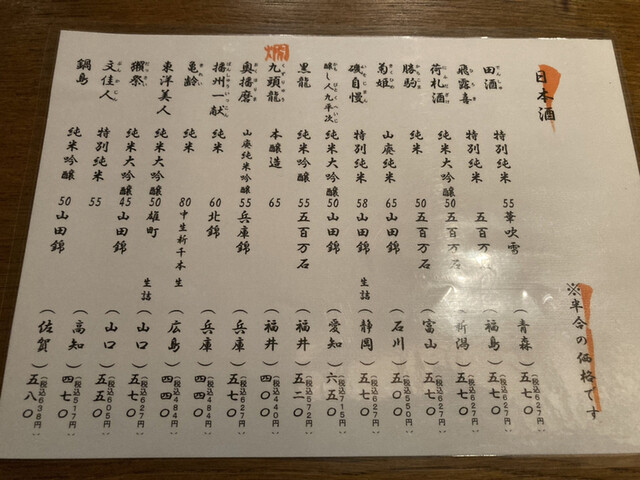 日本酒
※半合の価格です
田酒 特別純米 55 華吹雪 (青森) 五七〇 (税込627円)
飛露喜 特別純米 五百万石 (福島) 五七〇 (税込627円)
荷札酒 純米大吟醸 50 五百万石 (新潟) 五七〇 (税込627円)
勝駒 純米 50 五百万石 (富山) 五七〇 (税込627円)
菊姫 山廃純米 65 山田錦 (石川) 五〇〇 (税込550円)
磯自慢 特別純米 58 山田錦 生詰 (静岡) 五七〇 (税込627円)
醸し人九平次 純米大吟醸 50 山田錦 (愛知) 六五〇 (税込715円)
黒龍 純米吟醸 55 五百万石 (福井) 五二〇 (税込572円)
燗 九頭龍 本醸造 65 (福井) 四〇〇 (税込440円)
奥播磨 山廃純米吟醸 55 兵庫錦 (兵庫) 五七〇 (税込627円)
播州一献 純米 60 北錦 (兵庫) 四四〇 (税込484円)
亀齢 純米 80 中生新千本 生 (広島) 四四〇 (税込484円)
東洋美人 純米大吟醸 50 雄町 生詰 (山口) 五七〇 (税込627円)
獺祭 純米大吟醸 45 山田錦 (山口) 五五〇 (税込605円)
文佳人 特別純米 55 (高知) 四七〇 (税込517円)
鍋島 純米吟醸 50 山田錦 (佐賀) 五八〇 (税込638円)